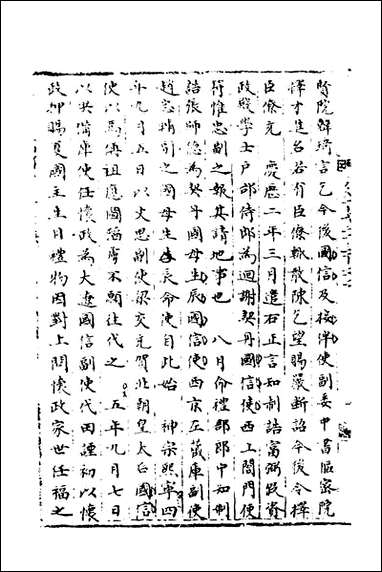 密院韓琦言乞今後國信及接伴使副委中書樞密院
擇才是名若有臣僚輒敢陳乞望賜嚴斷詔今後令擇
臣僚充　慶曆二年三月遣右正言知制誥富弼改資
政殿學士戶部侍郎為迴謝契丹國信使西上閤門使
符惟忠副之報其請地事也　八月命禮部郎中知制
誥張師德為契丹國母生辰國信使西京左藏庫副使
趙忠輔副之國母生辰長命使自此始　神宗熙寧四
年九月五日以文思副使梁交充賀北朝皇太后國信
使以馬偁祖應圖福廥不願往代之　五年九月七日
以供備庫使任懷政為大遼國信副使代田諲初以懷
政押賜夏國主生日禮物因對上問懷政家世任福之